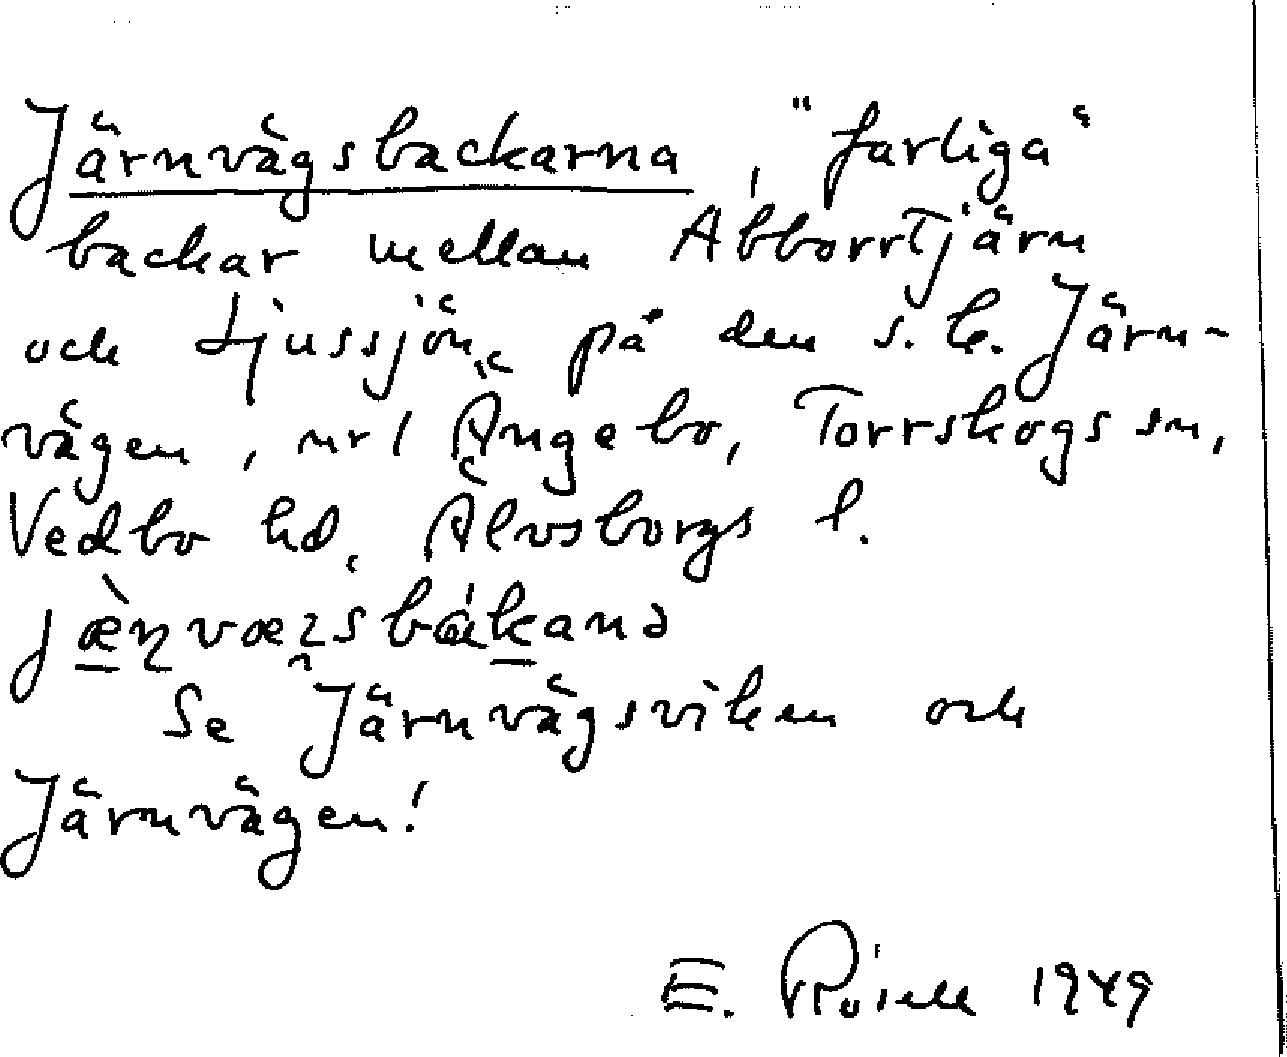 Järnvägsbackarna, "farliga"
backar mellan Abborrtjärn
och Ljussjön på den s.k. Järn-
vägen, nr 1 Ängebo, Torrskogs sn,
Vedbo hd, Älvsborgs l.
Se Järnvägsviken och
Järnvägen!
E. Rosell 1949